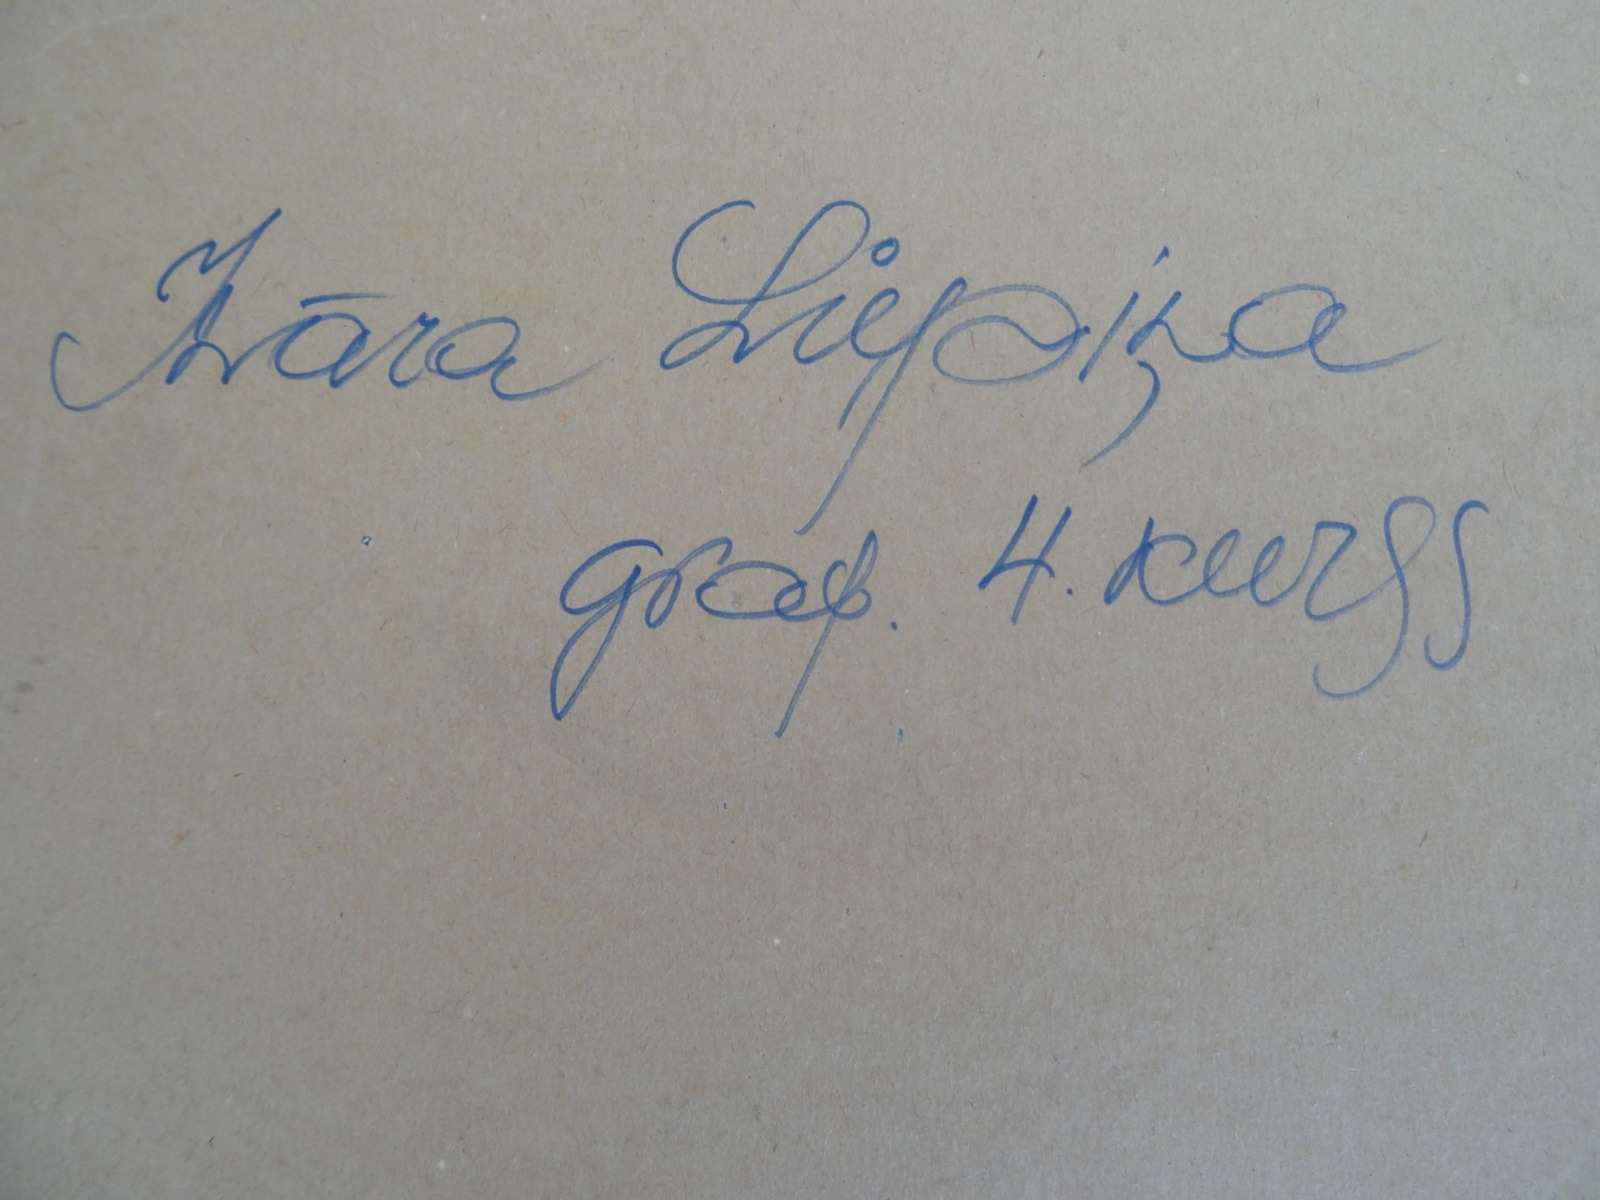 Ināra Liepiņa
graf. 4. kurss